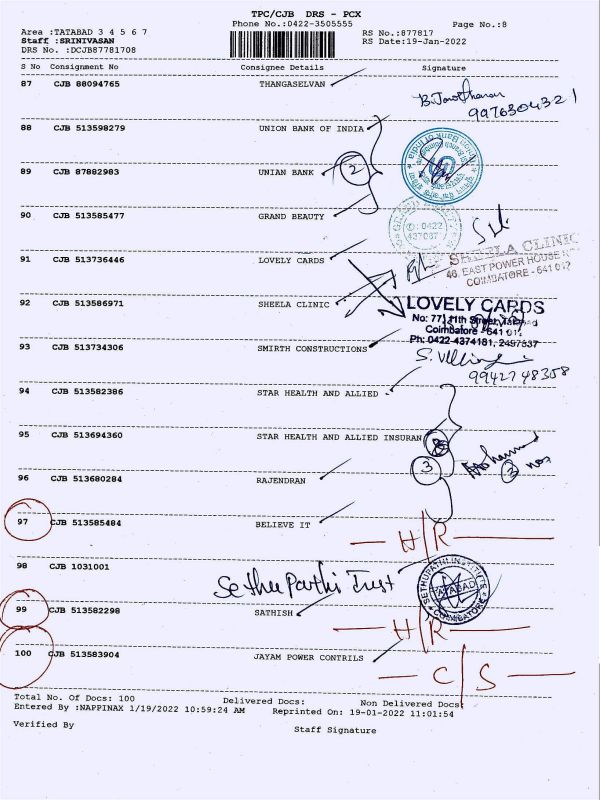 TPC/CJB DRS - PCX
Phone No.:0422-3505555
Page No.:8
Area :TATABAD 3 4 5 6 7
Staff :SRINIVASAN
DRS No. :DCJB87781708
RS No.:877817
RS Date:19-Jan-2022
S No Consignment No Consignee Details Signature
87 CJB 88094765 THANGASELVAN
9976304321
88 CJB 513598279 UNION BANK OF INDIA
89 CJB 87882983 UNIAN BANK 2
90 CJB 513585477 GRAND BEAUTY
0422
91 CJB 513736446 LOVELY CARDS
SHEELA CLINIC
46, EAST POWER HOUSE
COIMBATORE - 641 012
92 CJB 513586971 SHEELA CLINIC
LOVELY CARDS
No: 77, 11th Street,
Coimbatore - 641 012
Ph: 0422-4374181, 2497637
93 CJB 513734306 SMIRTH CONSTRUCTIONS
9942748358
94 CJB 513582386 STAR HEALTH AND ALLIED
95 CJB 513694360 STAR HEALTH AND ALLIED INSURAN
96 CJB 513680284 RAJENDRAN 3
3 nos
97 CJB 513585484 BELIEVE IT
H/R
98 CJB 1031001
Sethu Parthi Trust
TATABAD
COIMBATORE
99 CJB 513582298 SATHISH
H/R
100 CJB 513583904 JAYAM POWER CONTRILS
C/S
Total No. Of Docs: 100 Delivered Docs: Non Delivered Docs:
Entered By :NAPPINAX 1/19/2022 10:59:24 AM Reprinted On: 19-01-2022 11:01:54
Verified By
Staff Signature